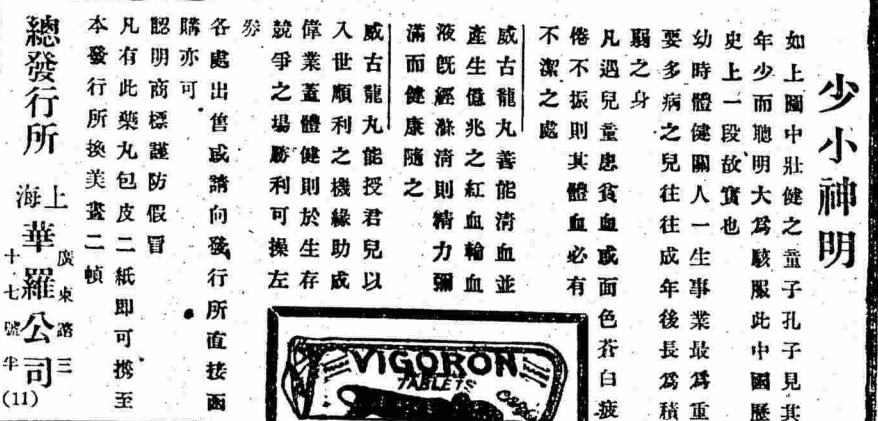 少小神明
如上圖中壯健之童子孔子見其
年少而聰明大爲駭服此中國歷
史上一段故實也
幼時體健關人一生事業最爲重
要多病之兒往往成年後長爲積
弱之身
凡遇兒童患貧血或面色蒼白疲
倦不振則其體血必有
不潔之處
威古龍丸善能清血並
產生億兆之紅血輪血
液旣經滌清則精力彌
滿而健康隨之
威古龍丸能授君兒以
入世順利之機緣助成
偉業蓋體健則於生存
競爭之場勝利可操左
券
各處出售或請向發行所直接函
購亦可
認明商標謹防假冒
凡有此藥丸包皮二紙即可携至
本發行所換美畫二幀
總發行所 上海 華羅公司 廣東路三十七號半
(11)
VIGORON
TABLETS